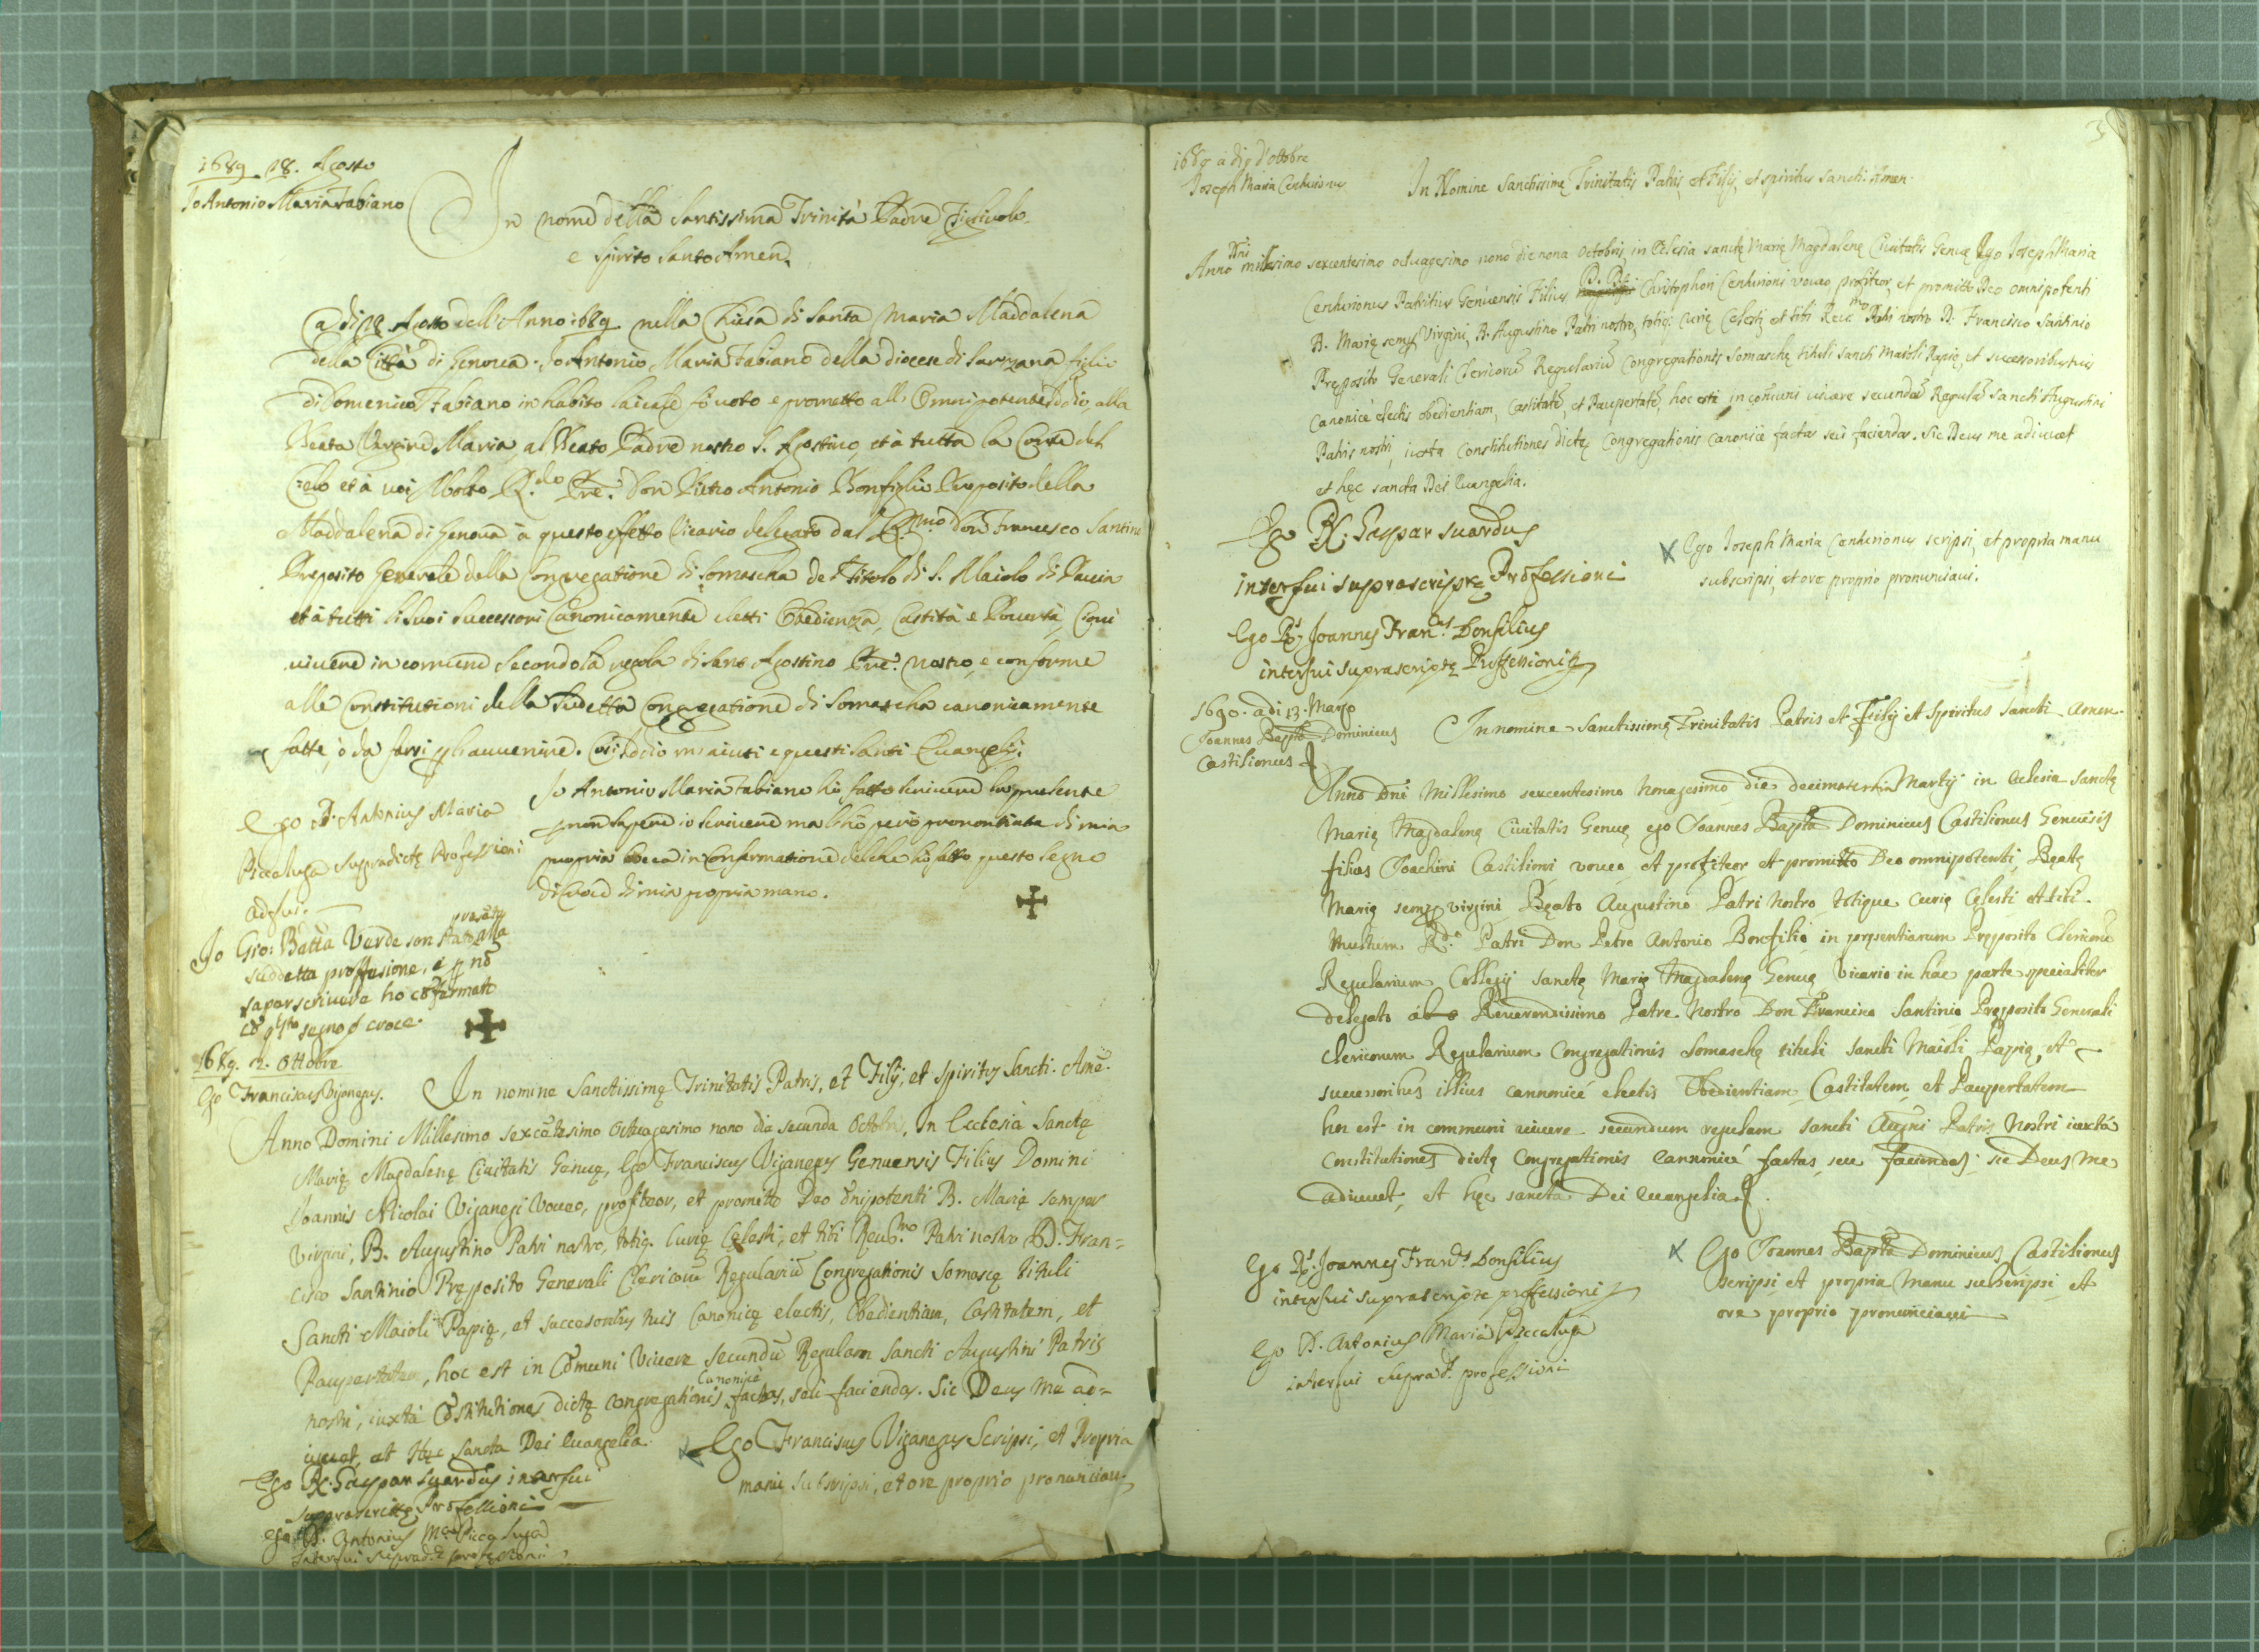 1689 28. Agosto
Io Antonio Maria Fabiano
In nome della Santissima Trinità Padre Figliuolo
e Spirito Santo Amen.
a di 28 Agosto dell'Anno 1689 nella Chiesa di Santa Maria Maddalena
della Città di Genova. Io Antonio Maria Fabiano della diocese di Sarzana figlio
di Domenico Fabiano in habito laicale fò voto e prometto all'Omnipotente Iddio, alla
Beata Vergine Maria, al Beato Padre nostro S. Agostino, et à tutta la Corte del
Cielo et à voi Molto R.do Pre. Don Pietro Antonio Bonfiglio Preposito della
Maddalena di Genova à questo effetto Vicario delegato dal R.mo Don Francesco Santini
Preposito Generale della Congregatione di Somasca del Titolo di S. Maiolo di Pavia
et à tutti li suoi successori Canonicamente eletti Obedienza, Castità e Povertà, Cioè
vivere in comune secondo la regola di Santo Agostino Pre. nostro, e conforme
alle Constitutioni della sudetta Congregatione di Somascha canonicamente
fatte, ò da farsi per l'avvenire. Così Iddio mi aiuti e questi Santi Evangelij.
Ego D. Antonius Maria
Piccaluga supradictę Professioni
adfui.
Io Antonio Maria Fabiano hò fatto scrivere la presente
per non sapere io scrivere ma l'hò però prononciata di mia
propria bocca in confermatione del che hò fatto questo segno
di Croce di mia propria mano.
Io Gio: Batta Verde son stato presente alla
suddetta proffesione, e p nõ
saper scrivere ho cõfermato
cõ q.sto segno d croce.
1689. 2. Ottobre
Ego Franciscus Viganegus.
In nomine Sanctissimę Trinitatis Patris, et Filij, et Spiritus Sancti. Amẽ.
Anno Domini Millesimo sexcẽtesimo Octuagesimo nono die secunda Octobris, In Ecclesia Sanctę
Marię Magdalenę Civitatis Genuę, Ego Franciscus Viganegus Genuensis Filius Domini
Joannis Nicolai Viganegi Voveo, profiteor, et promitto Deo õnipotenti B. Marię semper
Virgini, B. Augustino Patri nostro, totiq. Curię Cęlesti, et tibi Revd.mo Patri nostro D. Fran-
cisco Santinio Pręposito Generali Clericorũ Regulariũ Congregationis Somascę tituli
Sancti Maioli Papię, et successoribus tuis Canonicę electis, Obedientiam, Castitatem, et
Paupertatem, hoc est in Cõmuni Vivere secundũ Regulam Sancti Augustini Patris
nostri, iuxtà Cõstitutiones dictę Congregationis Canonicè factas, seù faciendas. Sic Deus me ad-
iuvet, et Hęc Sancta Dei Evangelia.
Ego Franciscus Viganegus Scripsi, et Propria
manu subscripsi, et ore proprio pronunciavi.
Ego D. Gaspar Suardus interfui
suprascriptę Professioni
Ego D. Antonius M.a Piccaluga
interfui suprad.ę professioni
3
1689 à di 9 d'ottobre
Joseph Maria Centurionus
In Nomine Sanctissimę Trinitatis Patris, et Filij, et Spiritus Sancti. Amen.
Anno Dñi millesimo sexcentesimo octuagesimo nono die nona Octobris, in Ecclesia sanctę Marię Magdalenę Civitatis Genuę Ego Joseph Maria
Centurionus Patritius Genuensis Filius Christophori Centurioni voveo, profiteor, et promitto Deo omnipotenti
B. Marię semper Virgini, B. Augustino Patri nostro, totiq; Curię Celesti, et tibi Rev.mo Patri nostro D. Francisco Santinio
Pręposito Generali Clericorũ Regulariũ Congregationis Somaschę tituli Sancti Maioli Papię, et successoribus tuis
Canonicè electis obedientiam, Castitatẽ, et Paupertatẽ, hoc est, in cõmuni vivere secundũ Regulã Sancti Augustini
Patris nostri, iuxta Constitutiones dictę Congregationis canonicè factas seù faciendas. Sic Deus me adiuvet
et hęc sancta Dei Evangelia.
Ego D. Gaspar Suardus
interfui suprascriptę Professioni
Ego Joseph Maria Centurionus scripsi, et propria manu
subscripsi, et ore proprio pronunciavi.
Ego D. Joannes Fran.cus Bonfilius
interfui suprascriptę Professioni
1690. adi 13. Marzo
Joannes Bapta Dominicus
Castilionus
In nomine Sanctissimę Trinitatis Patris et Filij et Spiritus Sancti Amen.
Anno Dñi Millesimo sexcentesimo Nonagesimo die decimatertia Martij in Eclesia Sanctę
Marię Magdalenę Civitatis Genuę ego Joannes Bapta Dominicus Castilionus Genuẽsis
filius Joachini Castilioni voveo et profiteor et promitto Deo omnipotenti, Beatę
Marię semp virgini Beato Augustino Patri Nostro, totique curię Cęlesti et tibi
Multum R.do Patri Don Petro Antonio Bonfilio in pręsentiarum Pręposito Clericorũ
Regularium Collegij Sanctę Marię Magdalenę Genuę Vicario in hac parte specialiter
delegato ab Reverendissimo Patre Nostro Don Francisco Santinio Pręposito Generali
Clericorum Regularium Congregationis Somaschę tituli Sancti Maioli Papię, et
successoribus illius cannonicè electis Obedientiam, Castitatem, et Paupertatem
hoc est in communi vivere secundum regulam Sancti Augni Patris Nostri iuxtà
Constitutiones dictę Congregationis Cannonicè factas, seu faciendas, sic Deus me
adiuvet, et hęc sancta Dei evangelia.
Ego D. Joannes Fran.cus Bonfilius
interfui suprascriptę professioni
Ego Joannes Bapta Dominicus Castilionus
scripsi et propria manu subscripsi, et
ore proprio pronunciavi
Ego D. Antonius Maria Piccaluga
interfui suprad. professioni